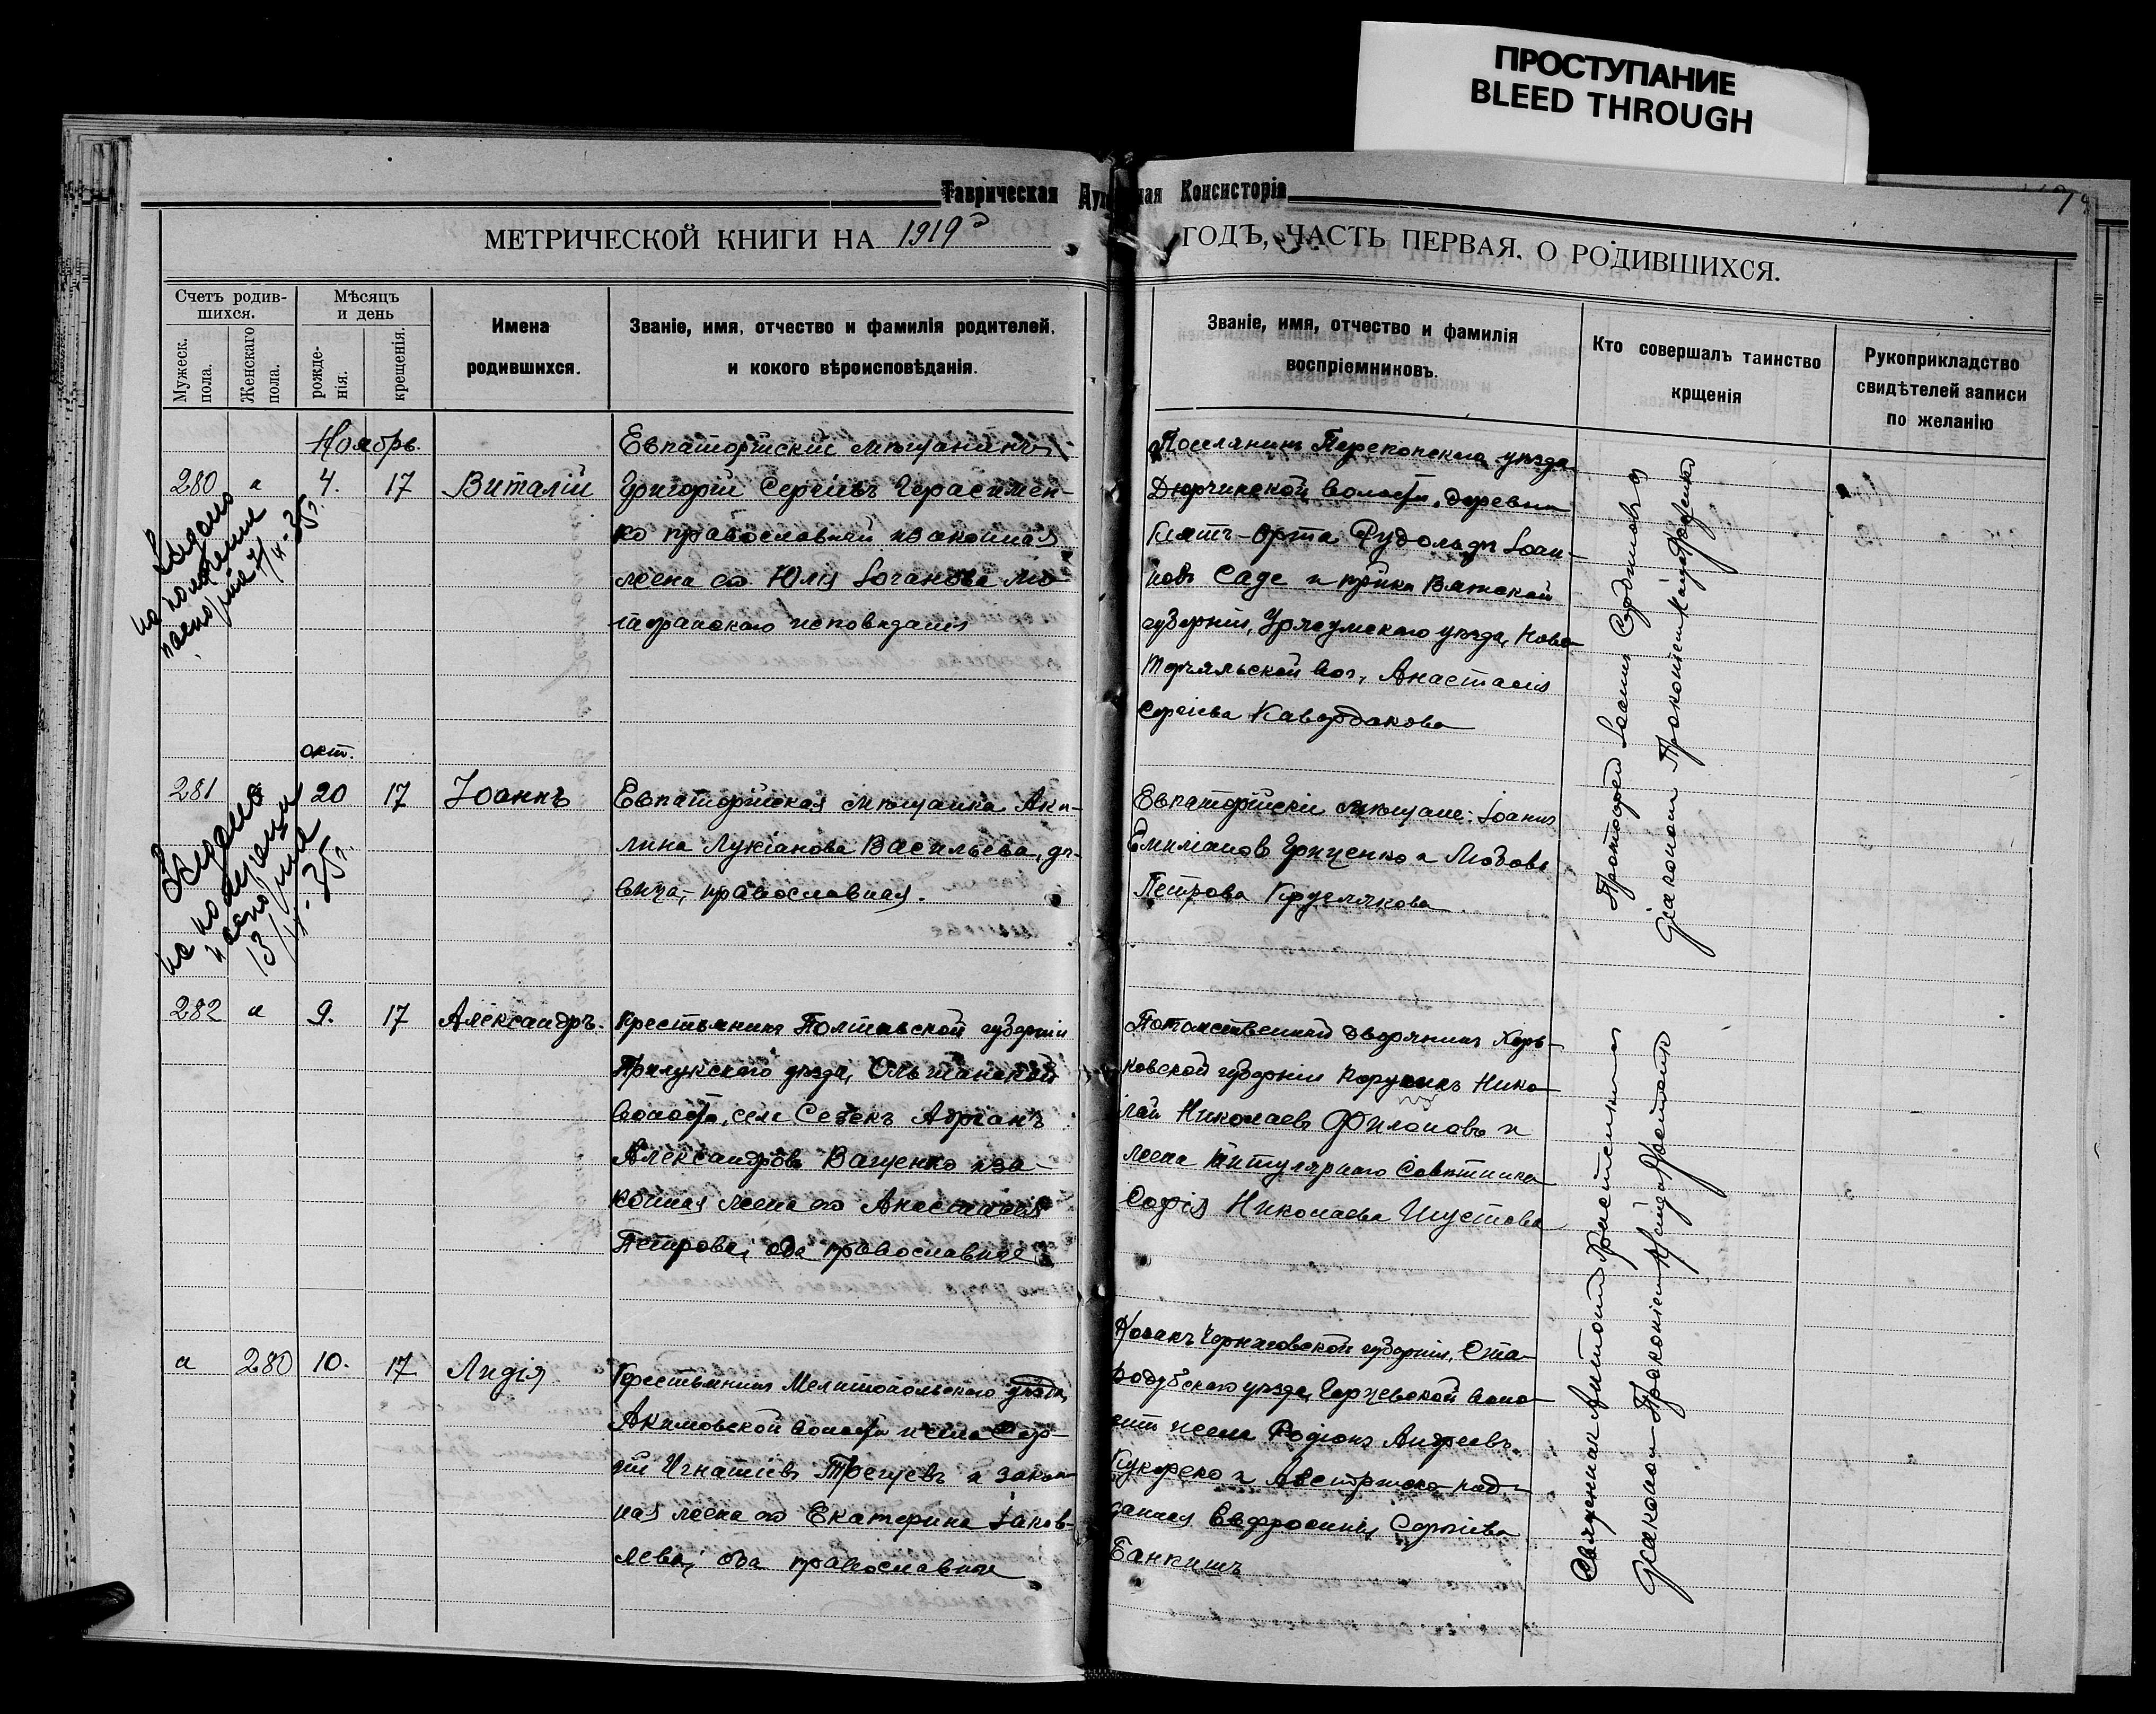 ПРОСТУПАНИЕ
BLEED THROUGH
Таврическая Духовная Консисторія
МЕТРИЧЕСКОЙ КНИГИ НА 1919 ГОДЪ, ЧАСТЬ ПЕРВАЯ. О РОДИВШИХСЯ.
Счетъ родив-
шихся.
Мужеск.
пола.
Женскаго
пола.
Мѣсяцъ
и день
рожде-
нія.
крещенія.
Имена
родившихся.
Званіе, имя, отчество и фамилія родителей,
и кокого вѣроисповѣданія.
Званіе, имя, отчество и фамилія
воспріемниковъ.
Кто совершалъ таинство
крщенія
Рукоприкладство
свидѣтелей записи
по желанію
Ноябрь
280 " 4. 17 Виталій
Евпаторійскій мѣщанинъ
Григорій Сергіевъ Герасимен-
ко православный и законная
жена его Юлія Іоганова лю-
исповѣданія
Поселянинъ Перекопскаго уѣзда
Дюрчинской волости, деревни
Кіятъ-Орта Рудольфъ Іоан-
новъ Саде и Вятской
губерніи, Уржумскаго уѣзда, Ново
Торъяльской вол., Анастасія
Сергіева Кавардакова
Протоіерей Іоаннъ Сердобовъ
діаконъ Прокопій
Выдано
на получение
паспорта
35г.
окт.
281 20 17 Іоаннъ
Евпаторійская мѣщанка Аки-
лина Лукіанова Васильева, дѣ-
вица, православная.
Евпаторійскіе мѣщане: Іоаннъ
Емиліановъ Гриценко и Любовь
Петрова Круглякова
Выдано
на получени
паспорта
13/II-35г.
282 " 9. 17 Александръ.
Крестьянинъ Полтавской губерніи
Прилукскаго уѣзда, Ольшанской
волости, села Адріанъ
Александровъ Ващенко и за-
конная жена его Анастасія
Петрова, оба православные
Потомственный дворянинъ Харь-
ковской губерніи Нико-
лай Николаевъ Филоновъ и
жена титулярнаго совѣтника
Софія Николаева Шустова
Священникъ Антоній
діаконъ Прокопій
" 280 10. 17 Лидія
Крестьянинъ Мелитопольскаго уѣзда,
Акимовской волости и села Сер-
гій Игнатіевъ Трегубъ и закон-
ная жена его Екатерина Іаков-
лева, оба православные
Козакъ Черниговской губерніи, Ста-
родубскаго уѣзда, воло-
сти и села Родіонъ Андреевъ
и Австрійско-под-
данная Евфросинія Сергіева